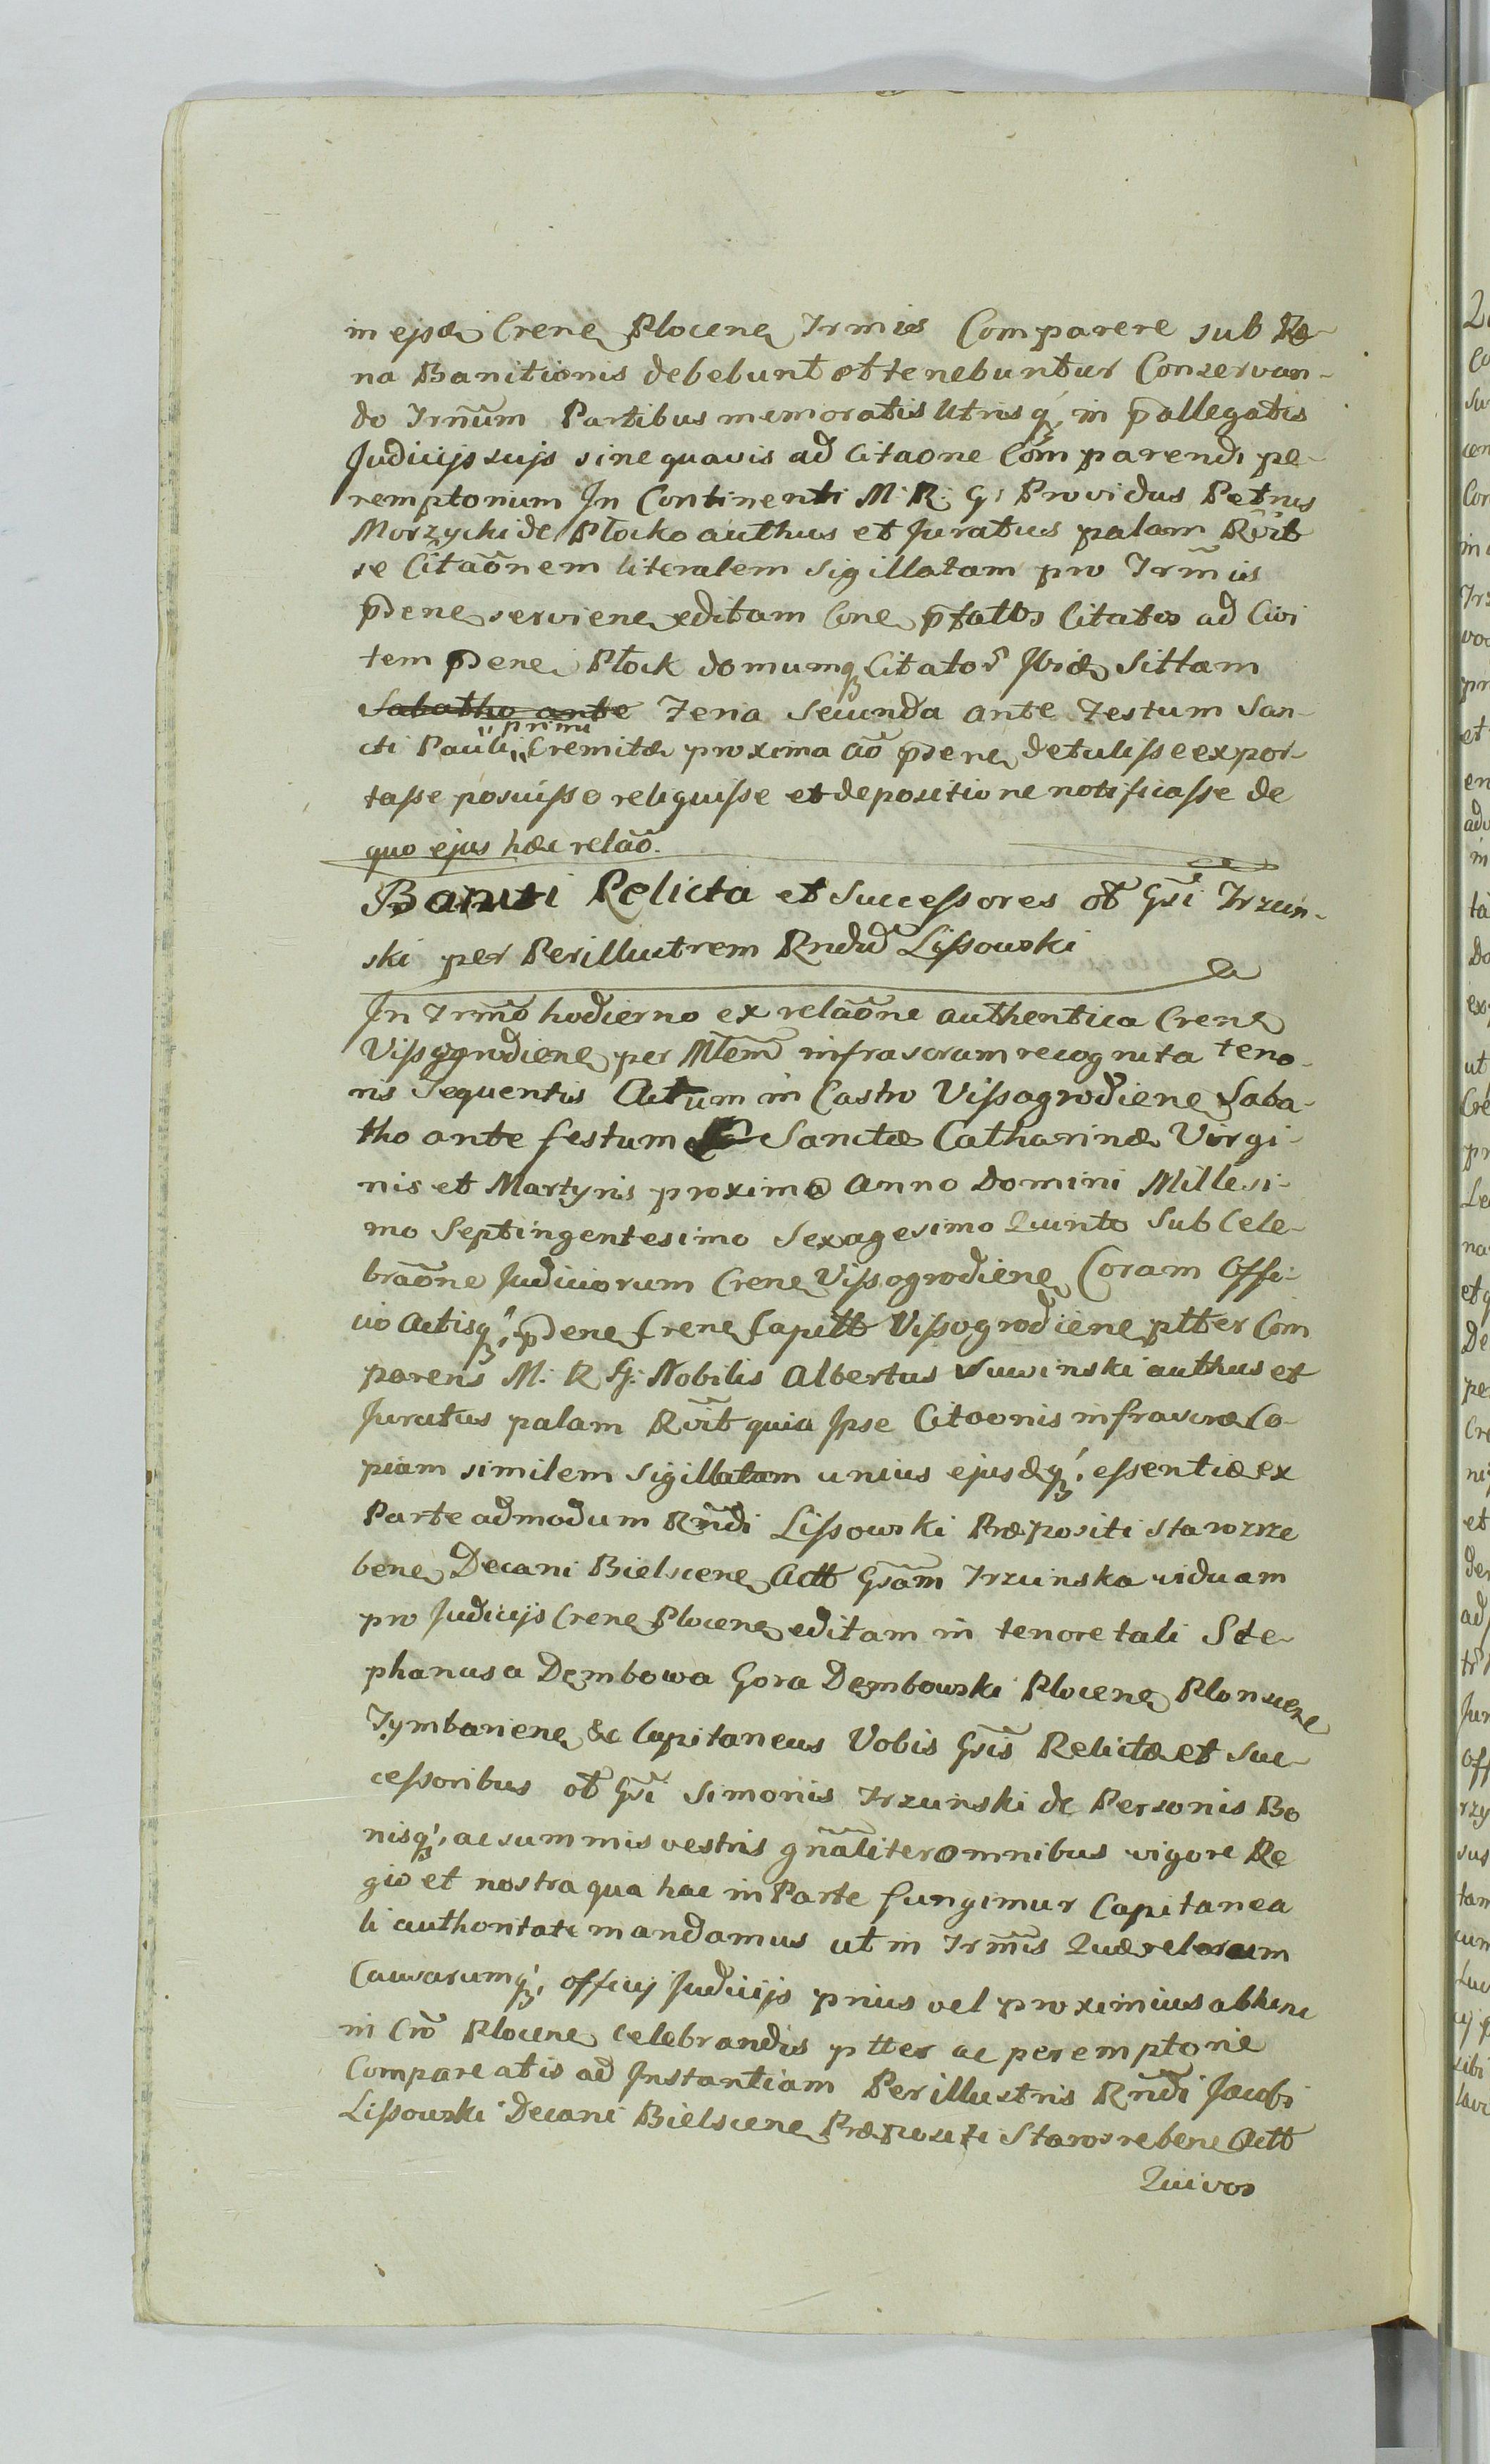 in ejsd Crene Plocene Trmis Comparere sub Pæ-
na Banitionis debebunt et tenebuntur Conservan-
do Trmum Partibus memoratis Utrisq; in pallegatis
Judicijs sujs sine quavis ad Citaone Comparendi pe-
remptorium In Continenti M: R: G: Providus Petrus
Morzycki de Płocko authus et Juratus palam Rvit
se Citaõnem literalem sigillatam pro Trmis
pdene serviene editam Cone pfattos Citatos ad Civi
tem pdene Płock domumq; Citator Ibid sittam
Sabatho ante Feria Secunda ante Festum San-
cti Pauli primi Eremitæ proxima aõ pdene detulisse expor-
tasse posuisse reliquisse et depositione notificasse de
quo ejus hæc relaõ.
Baniti Relicta et Successores ol Gsi Trzcin-
ski per Perillustrem Rndu Lissowski
In Trmo hodierno ex relaõne authentica Crene
Vissogrodiene per Mtem infrascram recognita teno-
ris Sequentis Actum in Castro Vissogrodiene Saba-
tho ante festum Sanctæ Catharinæ Virgi-
nis et Martyris proximo Anno Domini Millesi-
mo Septingentesimo Sexagesimo Quinto Sub Cele-
braõne Judiciorum Crene Vissogrodiene Coram Offi-
cio Actisq; pdene Crene Capitt Vissogrodiene ptter Com
parens M: R G: Nobilis Albertus authus et
Juratus palam Rvit quia Ipse Citaonis infrascræ Co-
piam similem sigillatam unius ejusdq; essentiæ ex
Parte admodum Rndi Lissowski Præpositi Starozrze
bene Decani Bielscene Actt Gsam Trzcinska viduam
pro Judicijs Crene Plocene editam in tenore tali Ste-
phanus a Dembowa Gora Dembowski Plocene Plonscene
Tymbariene &c Capitaneus Vobis Gsis Relictæ et Suc-
cessoribus ol Gsi Simonis Trzcinski de Personis Bo
nisq; ac summis vestris gnaliter omnibus vigore Re
gio et nostra qua hac in Parte fungimur Capitanea
li authoritate mandamus ut in Trmis Quærelarum
Causarumq; officij Judicijs prius vel proximius abhinc
in Cro Plocene celebrandis ptter ac peremptorie
Compareatis ad Instantiam Perillustris Rndi Jacobi
Lissowski Decani Bielscene Præpositi Starozrebene Actt
Qui vos